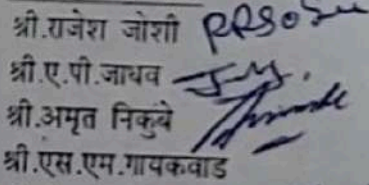 श्री.राजेश जोशी
श्री.ए.पी.जाधव
श्री.अमृत निकुंबे
श्री.एस.एम.गायकवाड